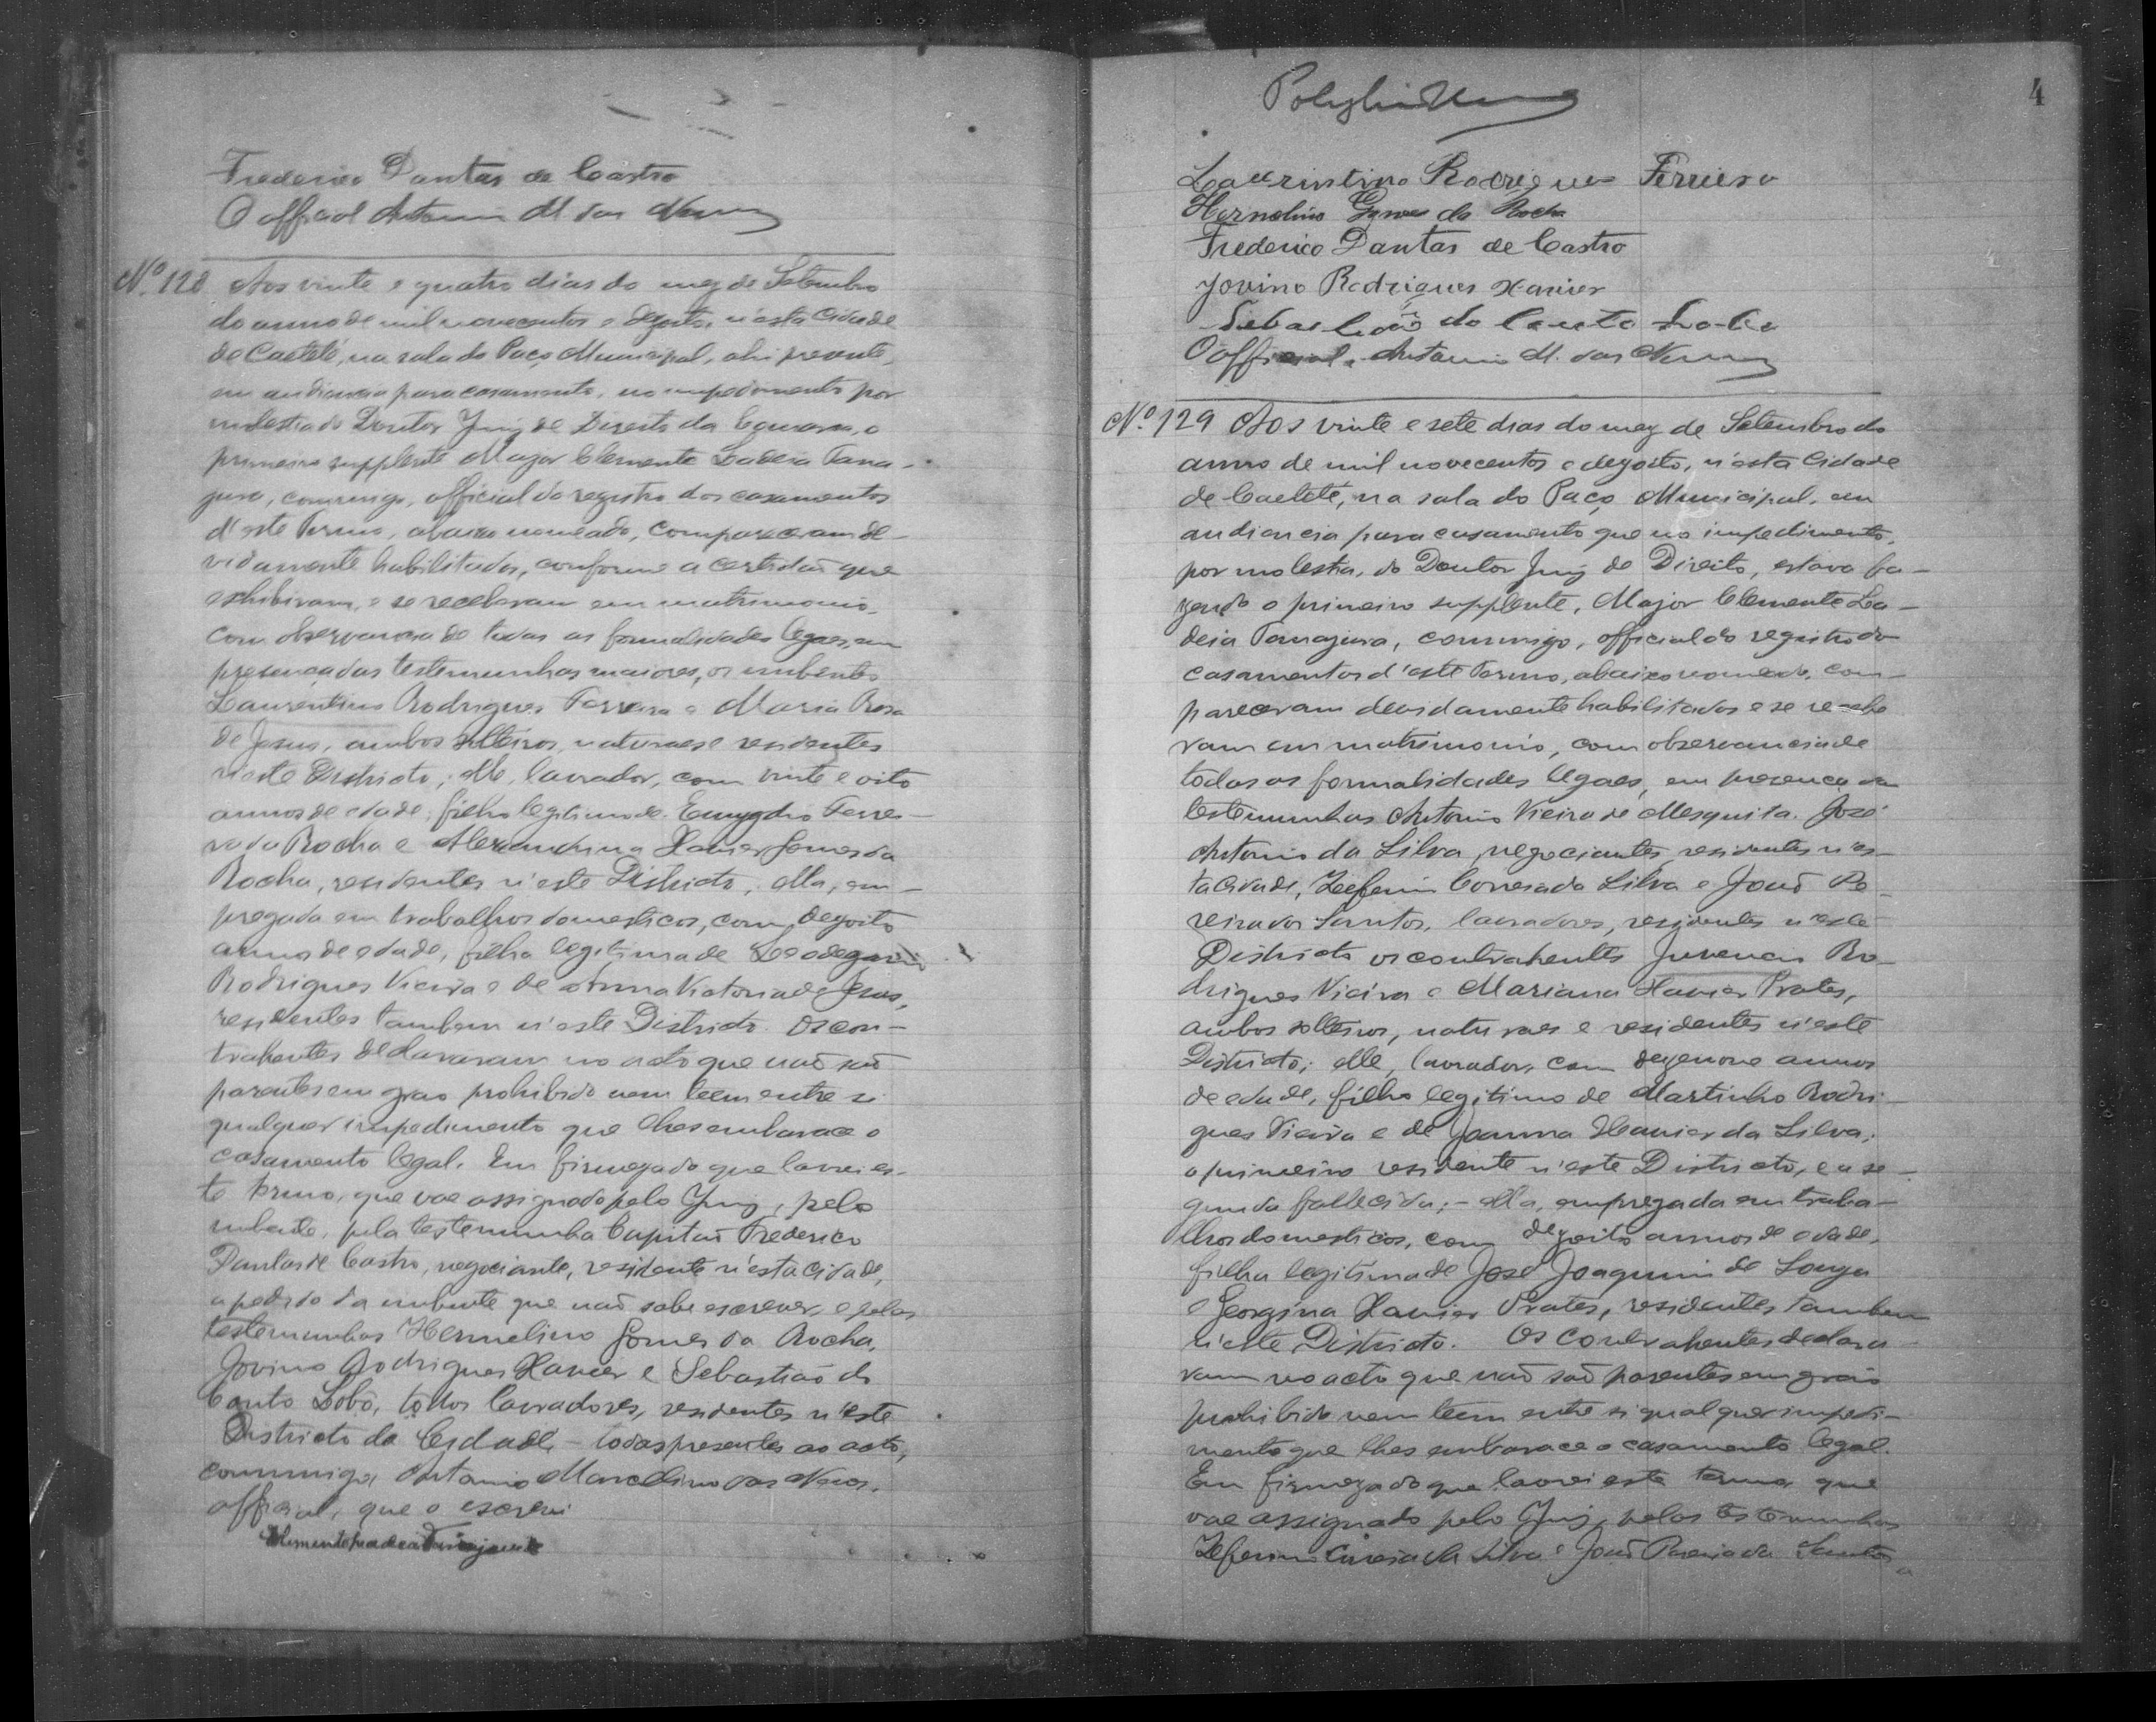 Frederico Dantas de Castro
O official Antonio M. das Neves
Nº 128 Aos vinte e quatro dias do mez de Setembro
do anno de mil novecentos e dezoito, n'esta Cidade
de Caeteté, na sala do Paço Municipal, ahi presente,
em audiencia para casamento, no impedimento por
molestia do Doutor Juiz de Direito da Comarca, o
primeiro supplente Major Clemente Ladeia Tana-
jura, commigo, official do registro dos casamentos
d'este Termo, abaixo nomeado, compareceram de-
vidamente habilitados, conforme a certidaõ que
exhibiram, e se receberam em matrimonio,
com observancia de todas as formalidades legaes, em
presença das testemunhas maiores, os nubentes
Laurentino Rodrigues Ferreira e Maria Rosa
de Jesus, ambos solteiros, naturaes e residentes
n'este Districto; elle, lavrador, com vinte e oito
annos de edade, filho legitimo de Emygdio Ferrei-
ra da Rocha e Alexandrina Xavier Gomes da
Rocha, residentes n'este Districto; ella, em-
pregada em trabalhos domesticos, com dezoito
annos de edade, filha legitima de Leodegario
Rodrigues Vieira e de Anna Victoria de Jesus,
residentes tambem n'este Districto. Os con-
trahentes declararam no acto que naõ saõ
parentes em grao prohibido nem teem entre si
qualquer impedimento que lhes embarace o
casamento legal. Em firmeza do que lavrei es-
te termo, que vae assignado pelo Juiz, pelo
nubente, pela testemunha Capitaõ Frederico
Dantas de Castro, negociante, residente n'esta Cidade,
a pedido da nubente que naõ sabe escrever, e pelas
testemunhas Hermelino Gomes da Rocha,
Jovino Rodrigues Xavier e Sebastiaõ do
Couto Lobo, todos lavradores, residentes n'este
Districto da Cidade - todas presentes ao acto,
commigo, Antonio Marcelino das Neves,
official, que o escrevi
Clemente Ladeia Tanajura
4
Laurintino Rodrigues Ferriera
Hernelino Gomes da Rocha
Frederico Dantas de Castro
Jovino Rodrigues Xavier
Sebastiaõ do Couto Lobo
O official, Antonio M. das Neves
Nº 129 Aos vinte e sete dias do mez de Setembro do
anno de mil novecentos e dezoito, n'esta Cidade
de Caeteté, na sala do Paço Municipal, em
audiencia para casamento que no impedimento,
por molestia, do Doutor Juiz de Direito, estava fa-
zendo o primeiro supplente, Major Clemente La-
deia Tanajura, commigo, official do registro do
casamentos d'este Termo, abaixo nomeado, com-
pareceram devidamente habilitados e se recebe
ram em matrimonio, com observancia de
todas as formalidades legaes, em presença das
testemunhas Antonio Vieira de Mesquita, José
Antonio da Silva, negociantes, residentes n'es-
ta Cidade, Zeferino Correia da Silva e Joaõ Pe-
reira dos Santos, lavradores, residentes n'este
Districto os contrahentes Juvencio Ro-
drigues Vieira e Mariana Xavier Prates,
ambos solteiros, naturaes e residentes n'este
Districto; elle, lavrador, com dezenove annos
de edade, filho legitimo de Martinho Rodri-
gues Vieira e de Joanna Xavier da Silva,
o primeiro residente n'este Districto, e a se-
gunda fallecida; - ella, empregada em traba-
lhos domesticos, com dezoito annos de edade,
filha legitima de José Joaquim de Souza
e Georgina Xavier Prates, residentes tambem
n'este Districto. Os contrahentes declara-
ram no acto que naõ saõ parentes em grao
prohibido nem teem entre si qualquer impedi-
mento que lhes embarace o casamento legal.
Em firmeza do que lavrei este termo, que
vae assignado pelo Juiz, pelas testemunhas
Zeferino Correia da Silva e Joaõ Pereira dos Santos,